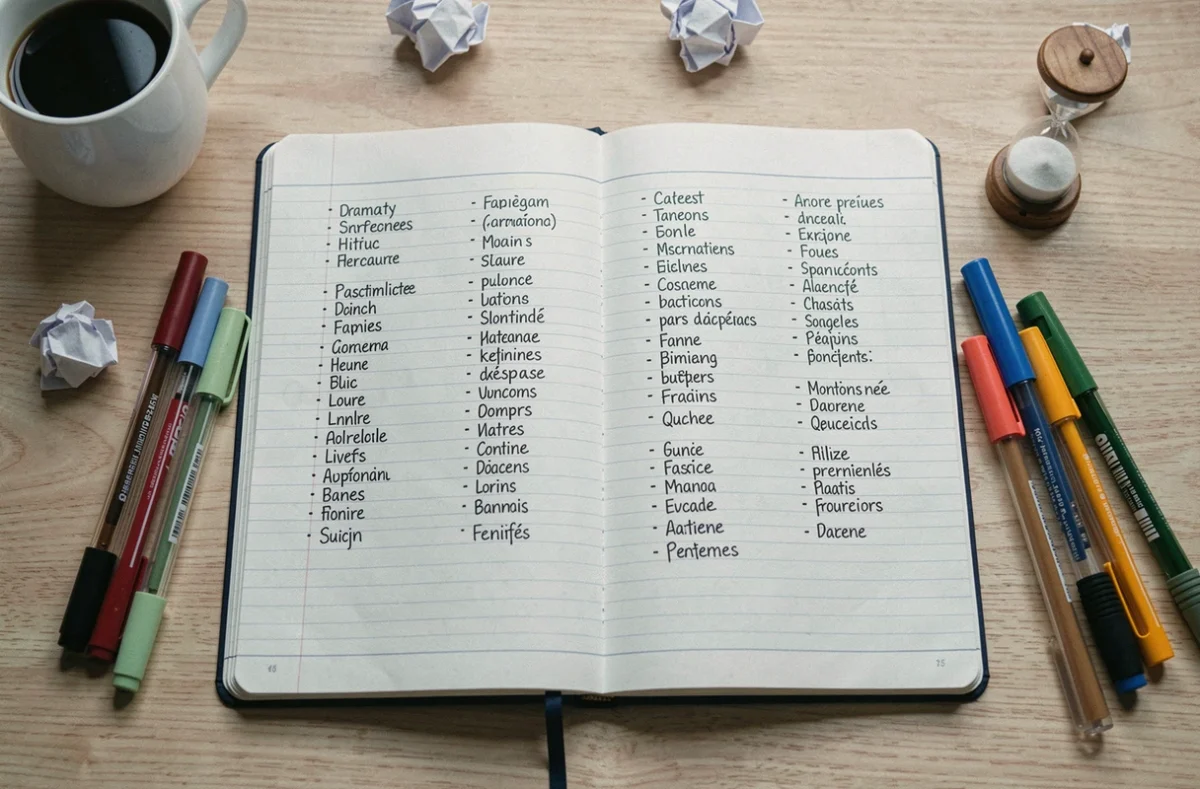 - Dramaty
- Snrfeonees
- Hitiuc
- Hercaurre
- Pasctimlictee
- Doinch
- Fapnies
- Gomema
- Heune
- Blic
- Loure
- Lnnlre
- Aolreloile
- Livefs
- Banes
- Suicjn
- Fapiègam
- Moain s
- Slaure
- pulonce
- Latons
- Slontindé
- kefinines
- dréspase
- Vuncoms
- Domprs
- Natres
- Contine
- Döacens
- Lorins
- Bannais
- Feniifés
- Cateest
- Taneons
- Bonle
- Mscrnatiens
- Eiclnes
- Cosneme
- bacticons
- pars dácpéiacs
- Fanne
- Bimiang
- Fradins
- Quchee
- Gunce
- Fasice
- Mnanoa
- Evcade
- Aatiene
- Penfemes
- Anore preiues
- Exrjone
- Foues
- Spanicconts
- Alaencfé
- Chasats
- Songeles
- Péajuns
- Montons née
- Daorene
- Qeuceicds
- Ailize
- prernienlés
- Paatis
- Froureiors
- Dacene
15